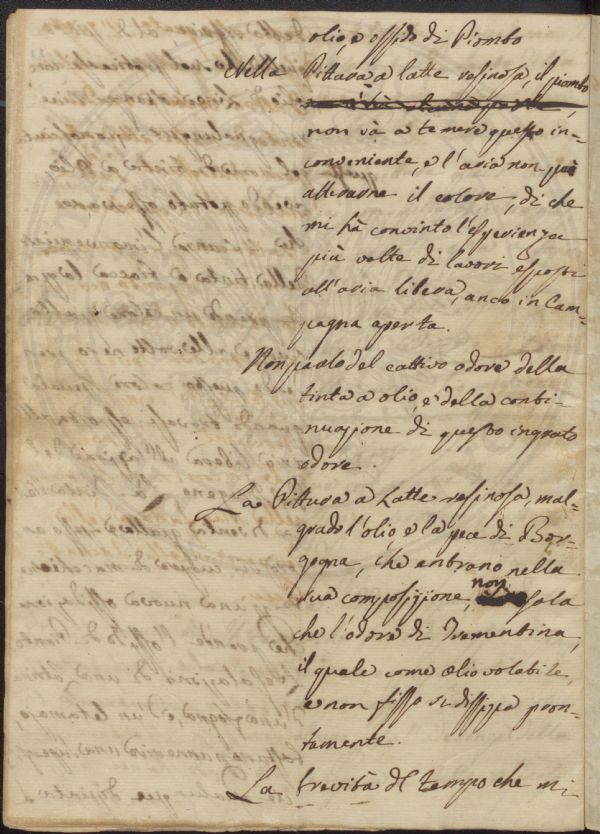 olio, e ossido di Piombo
Nella Pittura a latte resinosa, il piombo
non và a temere questo in-
conveniente, e l'aria non può
alterarne il colore, di che
mi hà convinto l'esperienza
più volte di lavori esposti
all'aria libera, anco in Cam-
pagna aperta.
Non parlo del cattivo odore della
tinta a olio, e della conti-
nuazione di questo ingrato
odore.
La Pittura a Latte resinosa, mal-
grado l'olio e la pece di Bor-
gogna, che entrano nella
sua composizione, non
che l'odore di Trementina,
il quale come olio volatile,
e non fisso si dissipa pron-
tamente.
La brevità del tempo che mi